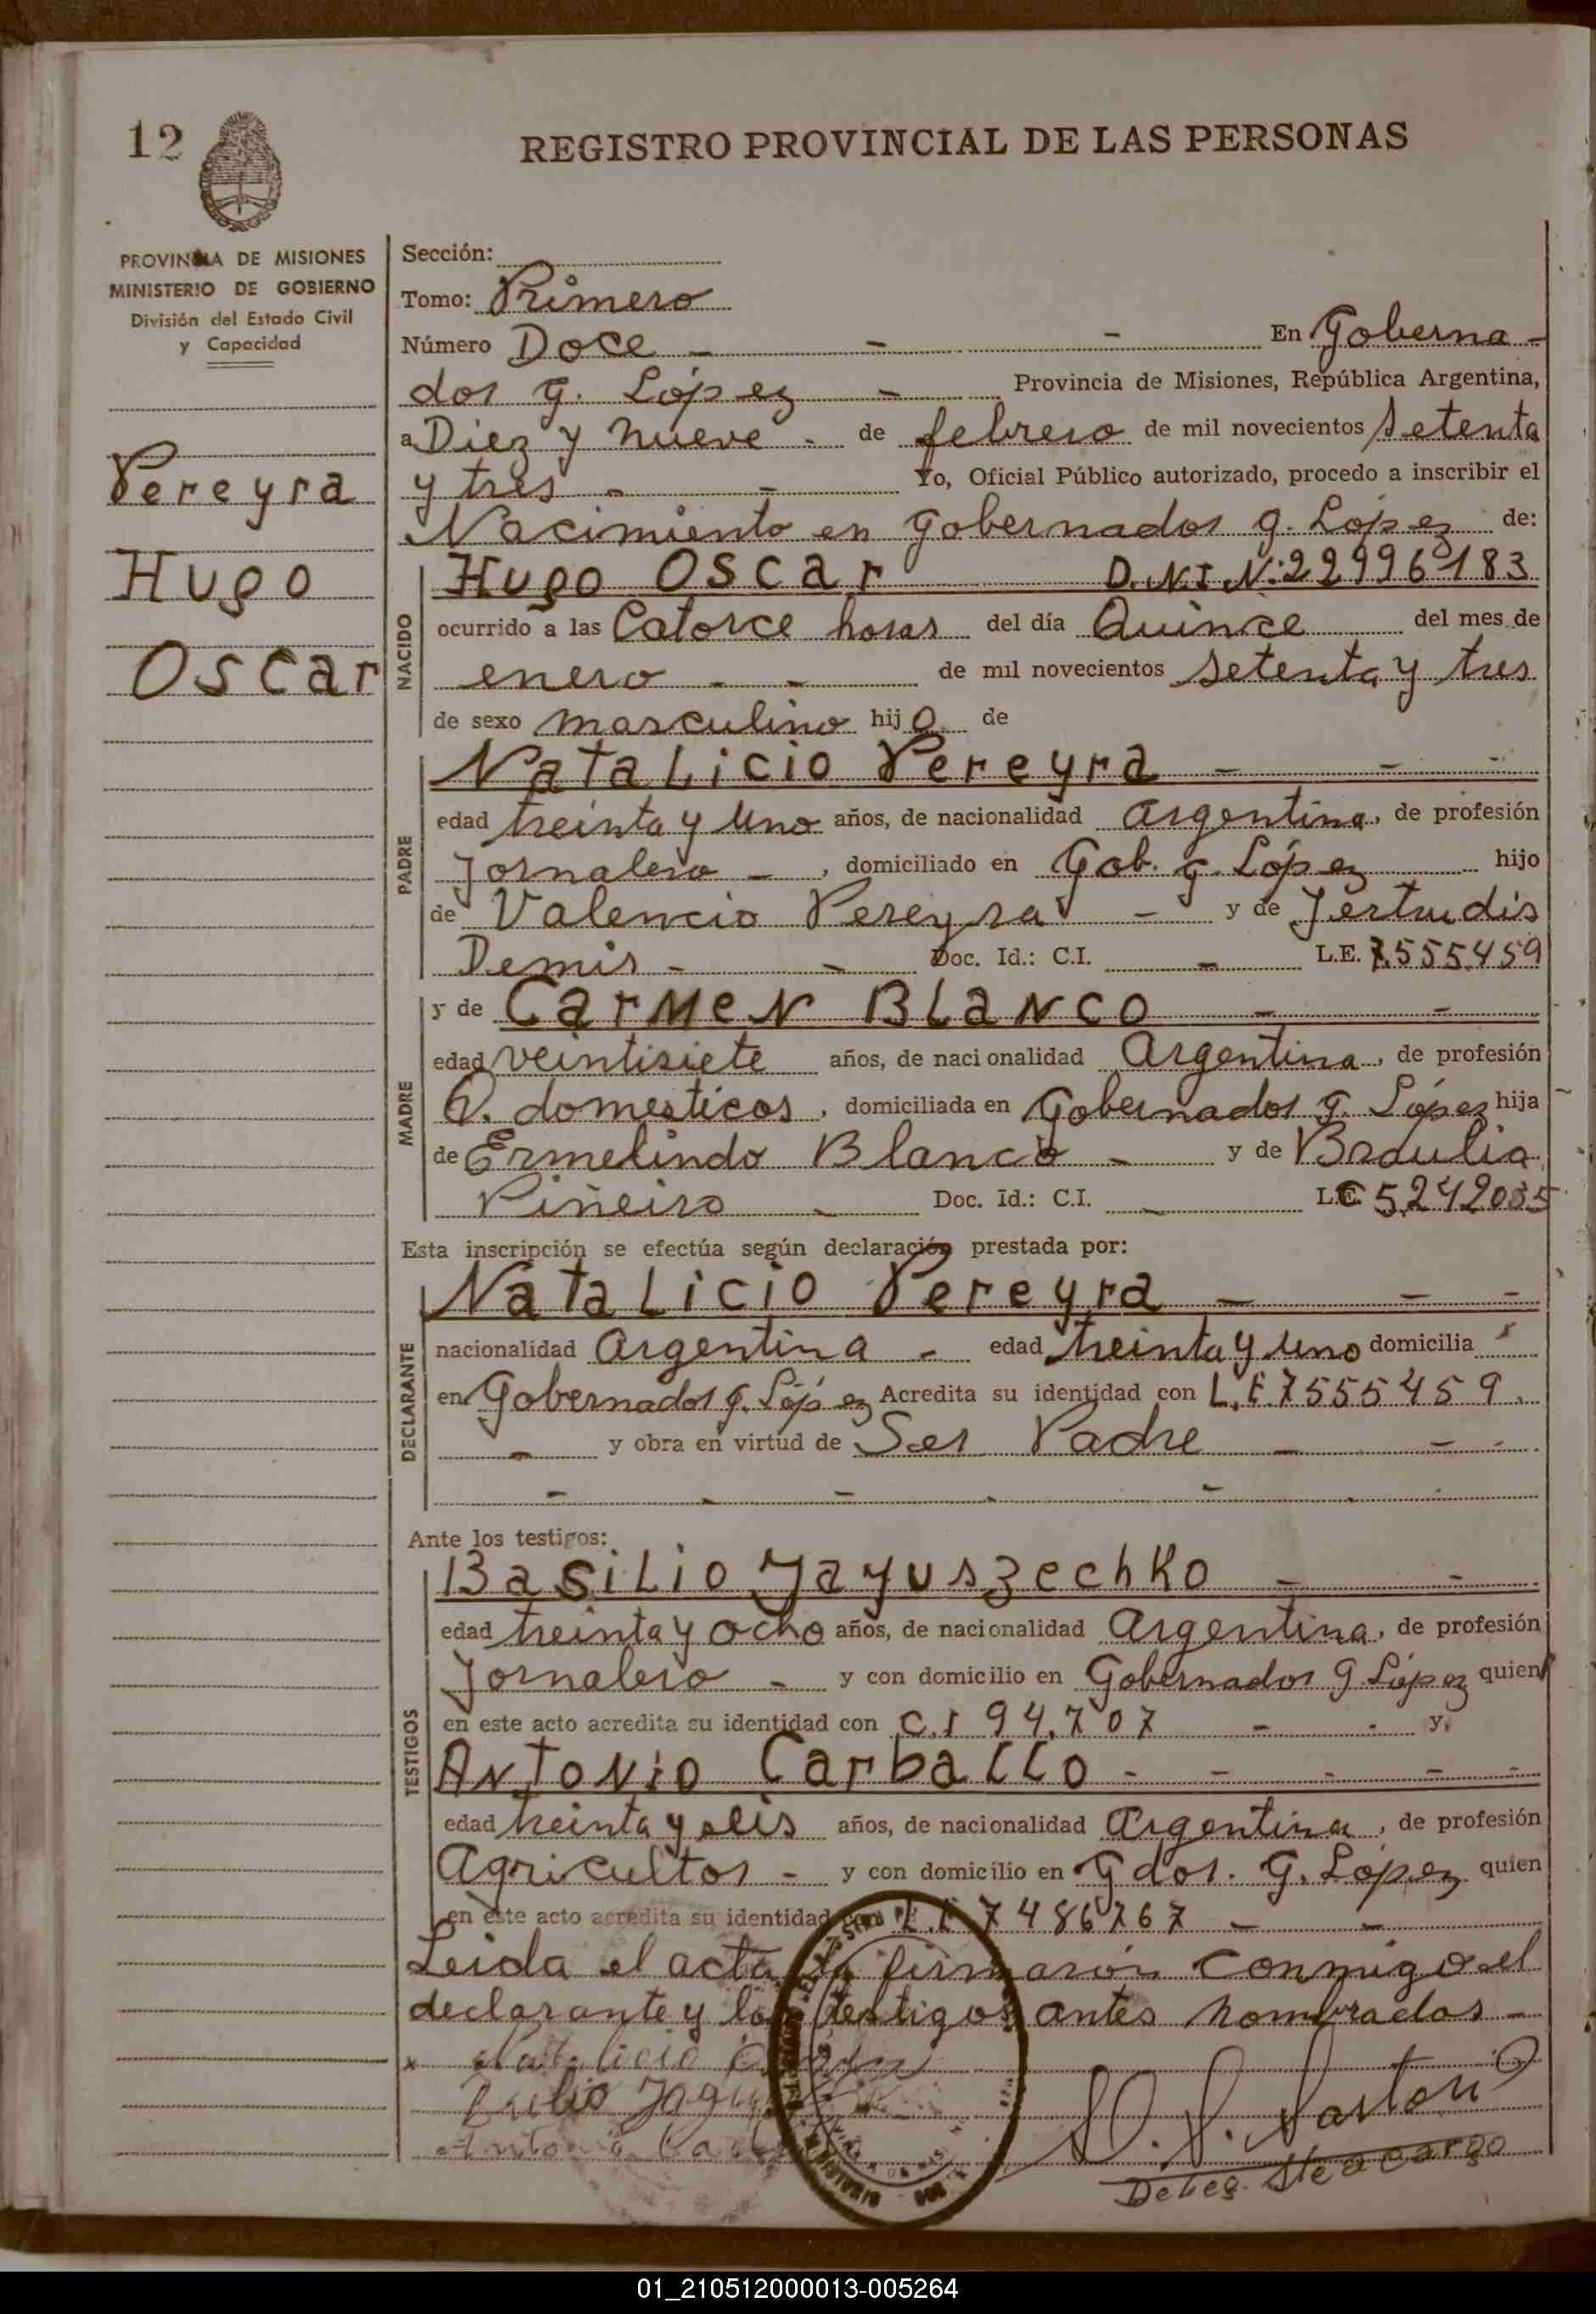 12
REGISTRO PROVINCIAL DE LAS PERSONAS
PROVINCIA DE MISIONES
MINISTERIO DE GOBIERNO
División del Estado Civil
y Capacidad
Pereyra
Hugo
Oscar
Sección:
Tomo: Primero
Número Doce - - - En Goberna-
dor G. López - Provincia de Misiones, República Argentina,
a Diez y nueve - de febrero de mil novecientos setenta
y tres - - Yo, Oficial Público autorizado, procedo a inscribir el
Nacimiento en Gobernador G. López de:
NACIDO
Hugo Oscar D.N.I N: 22996183
ocurrido a las Catorce horas del día Quince del mes de
enero - - de mil novecientos setenta y tres
de sexo masculino hijo de
PADRE
Natalicio Pereyra - - -
edad treinta y uno años, de nacionalidad Argentina, de profesión
Jornalero -, domiciliado en Gob. G. López hijo
de Valencio Pereyra - y de Jertrudis
Demis - - Doc. Id.: C.I. - L.E. 7.555.459
MADRE
y de Carmen Blanco - -
edad veintisiete años, de nacionalidad Argentina, de profesión
Q. domesticos, domiciliada en Gobernador G. López hija
de Ermelindo Blanco - y de Braulia
Piñeiro - Doc. Id.: C.I. - L.C 5.242035
Esta inscripción se efectúa según declaración prestada por:
DECLARANTE
Natalicio Pereyra - - -
nacionalidad Argentina - edad treinta y uno domicilia
en Gobernador G. López Acredita su identidad con L.E. 7555459.
- y obra en virtud de Ser Padre - - -
- - - - - -
Ante los testigos:
TESTIGOS
Basilio Jayuszechko - -
edad treinta y ocho años, de nacionalidad Argentina, de profesión
Jornalero - y con domicilio en Gobernador G López quien
en este acto acredita su identidad con C.I 94.707 - - y,
Antonio Carballo - - - - -
edad treinta y seis años, de nacionalidad Argentina, de profesión
Agricultor - y con domicilio en Gdor. G. López quien
en este acto acredita su identidad con L.E 7486767 - -
Leida el acta la firmaron conmigo el
declarante y los testigos antes nombrados -
x Natalicio
Antonio
Deleg. Ste a cargo
01_210512000013-005264